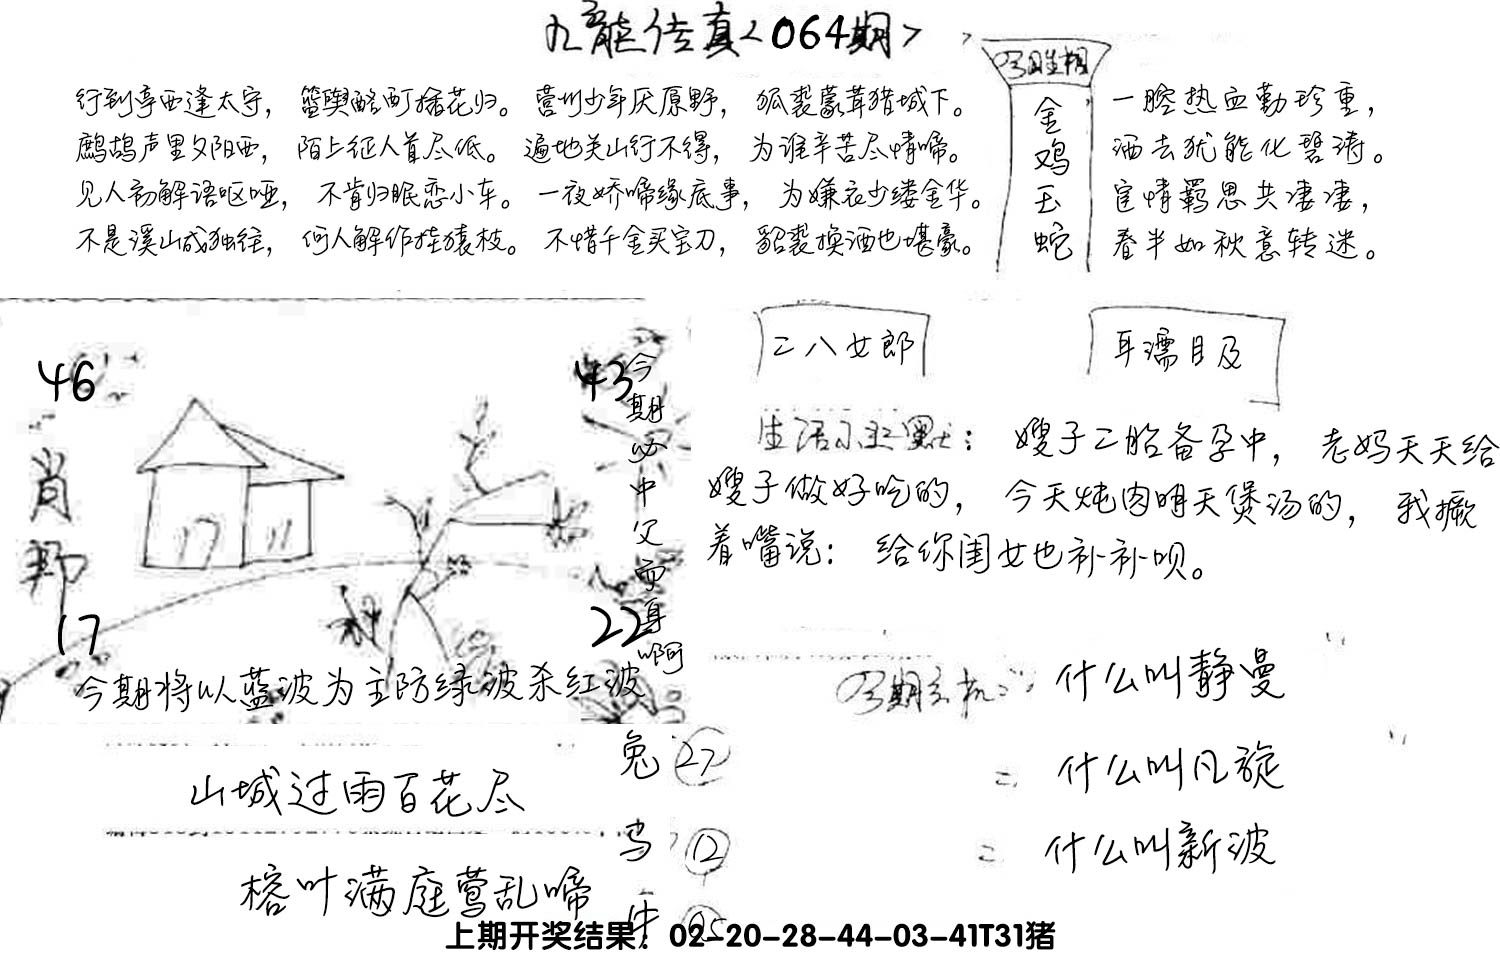 九龙传真<064期>
行到亭西逢太守，篮舆酩酊插花归。营州少年厌原野，狐裘蒙茸猎城下。
鹧鸪声里夕阳西，陌上征人首尽低。遍地关山行不得，为谁辛苦尽情啼。
见人初解语呕哑，不肯归眠恋小车。一夜娇啼缘底事，为嫌衣少缕金华。
不是溪山成独往，何人解作挂猿枝。不惜千金买宝刀，貂裘换酒也堪豪。
金鸡玉蛇
一腔热血勤珍重，
洒去犹能化碧涛。
宦情羁思共凄凄，
春半如秋意转迷。
46
43
肖
17
22
今期必中父而身啊
今期将以蓝波为主防绿波杀红波
二八女郎
耳濡目及
生活小幽默：嫂子二胎备孕中，老妈天天给
嫂子做好吃的，今天炖肉明天煲汤的，我撅
着嘴说：给你闺女也补补呗。
什么叫静曼
= 什么叫凡旋
= 什么叫新波
山城过雨百花尽
榕叶满庭莺乱啼
兔 27
12
牛 05
上期开奖结果：02-20-28-44-03-41T31猪